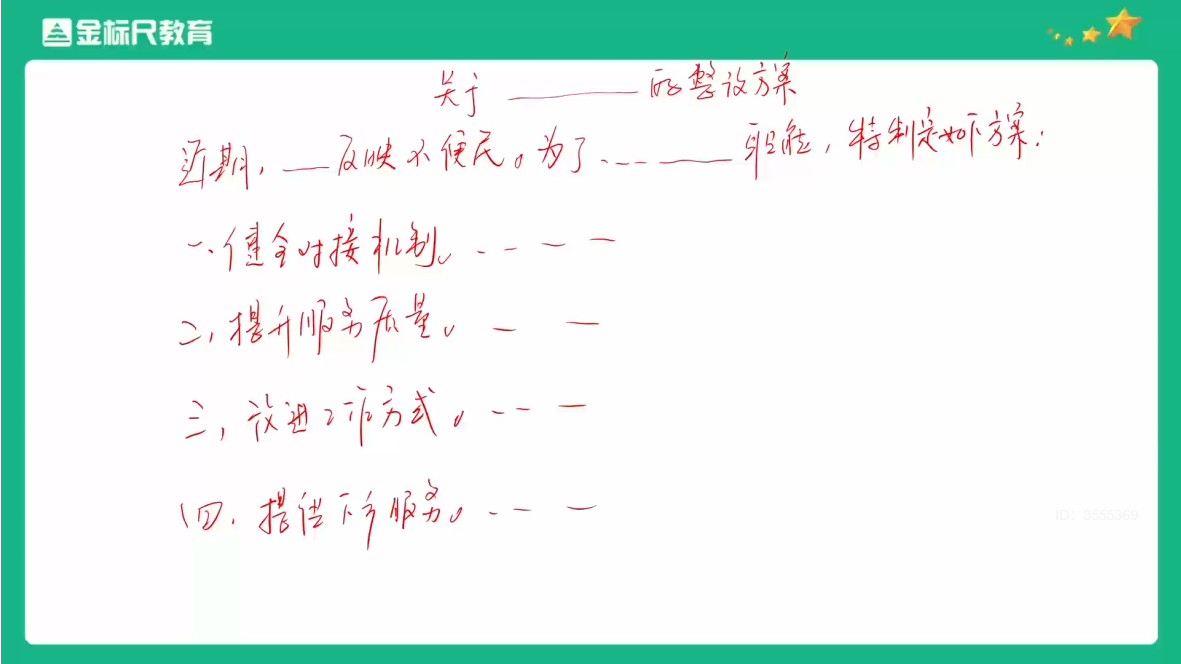 金标尺教育
关于 ———— 的整改方案
近期，——反映不便民。为了……——— 职能，特制定如下方案：
一、健全对接机制。- - — —
二、提升服务质量。— —
三、改进工作方式。- - - —
四、提供下乡服务。- - — —
ID：3555369